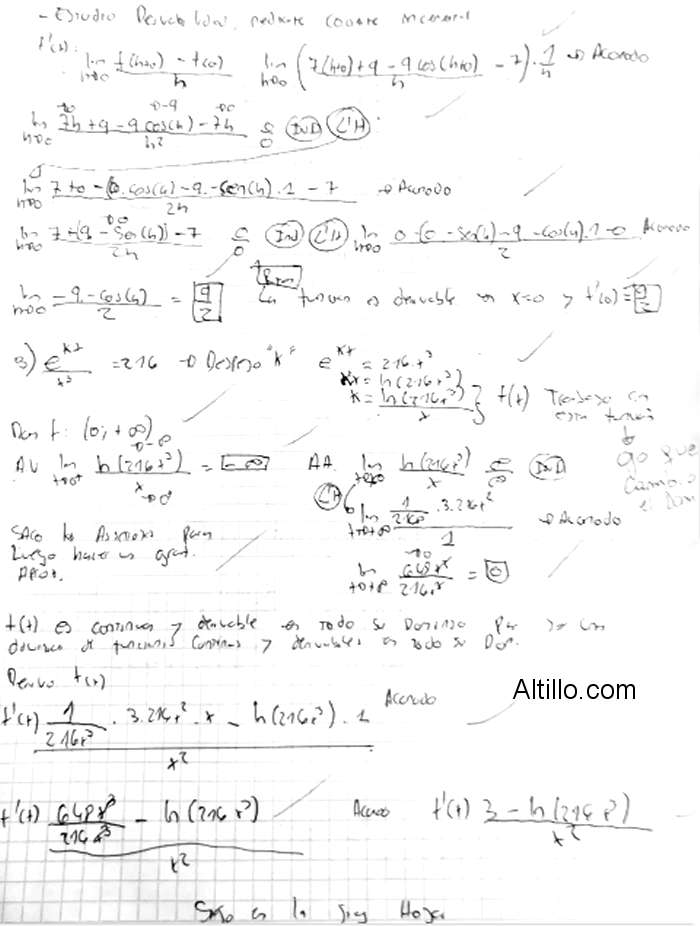 - Estudio Derivabilidad, mediante cociente incremental
f'(x): lim h→0 f(h+0) - f(0) / h lim h→0 (7(h+0)+9-9cos(h+0) / h - 7) · 1/h → Acomodo
lim h→0 7h+9-9cos(h)-7h / h² 0/0 IND L'H
lim h→0 7+0-(0.cos(h)-9.-sen(h).1-7 / 2h → Acomodo
lim h→0 7+(9-sen(h))-7 / 2h 0/0 IND L'H lim h→0 0-(0-sen(h)-9-cos(h).1-0 / 2 Acomodo
lim h→0 -9-cos(h) / 2 = 9/2 La funcion es derivable en x=0 y f'(0)=9/2
3) e^kx / x³ = 216 → Despejo "K" e^kx = 216.x³
kx = ln(216x³)
k = ln(216x³) / x } f(x) Trabajo con esta funcion
Dom f: (0; +∞)
AV lim x→0+ ln(216x³) / x = -∞ AA lim x→+∞ ln(216x³) / x ∞/∞ IND
L'H lim x→+∞ 1/216x³ . 3.216x² / 1 → Acomodo
Saco las Asintotas para
luego hacer un graf.
Aprox.
lim x→+∞ 648x² / 216x³ = 0
f(x) es continua y derivable en todo su Dominio por ser una
division de funciones continuas y derivables en todo su Dom.
Derivo f(x)
Altillo.com
f'(x) 1/216x³ . 3.216x² . x - ln(216x³) . 1 / x² Acomodo
f'(x) 648x³/216x³ - ln(216x³) / x² Acomodo f'(x) 3 - ln(216x³) / x²
Sigo en la sig Hoja